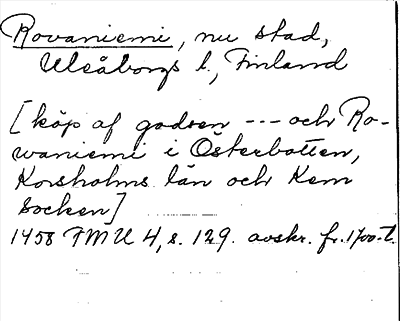 Rovaniemi, nu stad,
Uleåborgs l., Finland
[köp af godsen --- och Ro-
waniemi i Österbotten,
Korsholms län och Kem
socken]
1458 FMU 4, s. 129. avskr. fr. 1700-t.